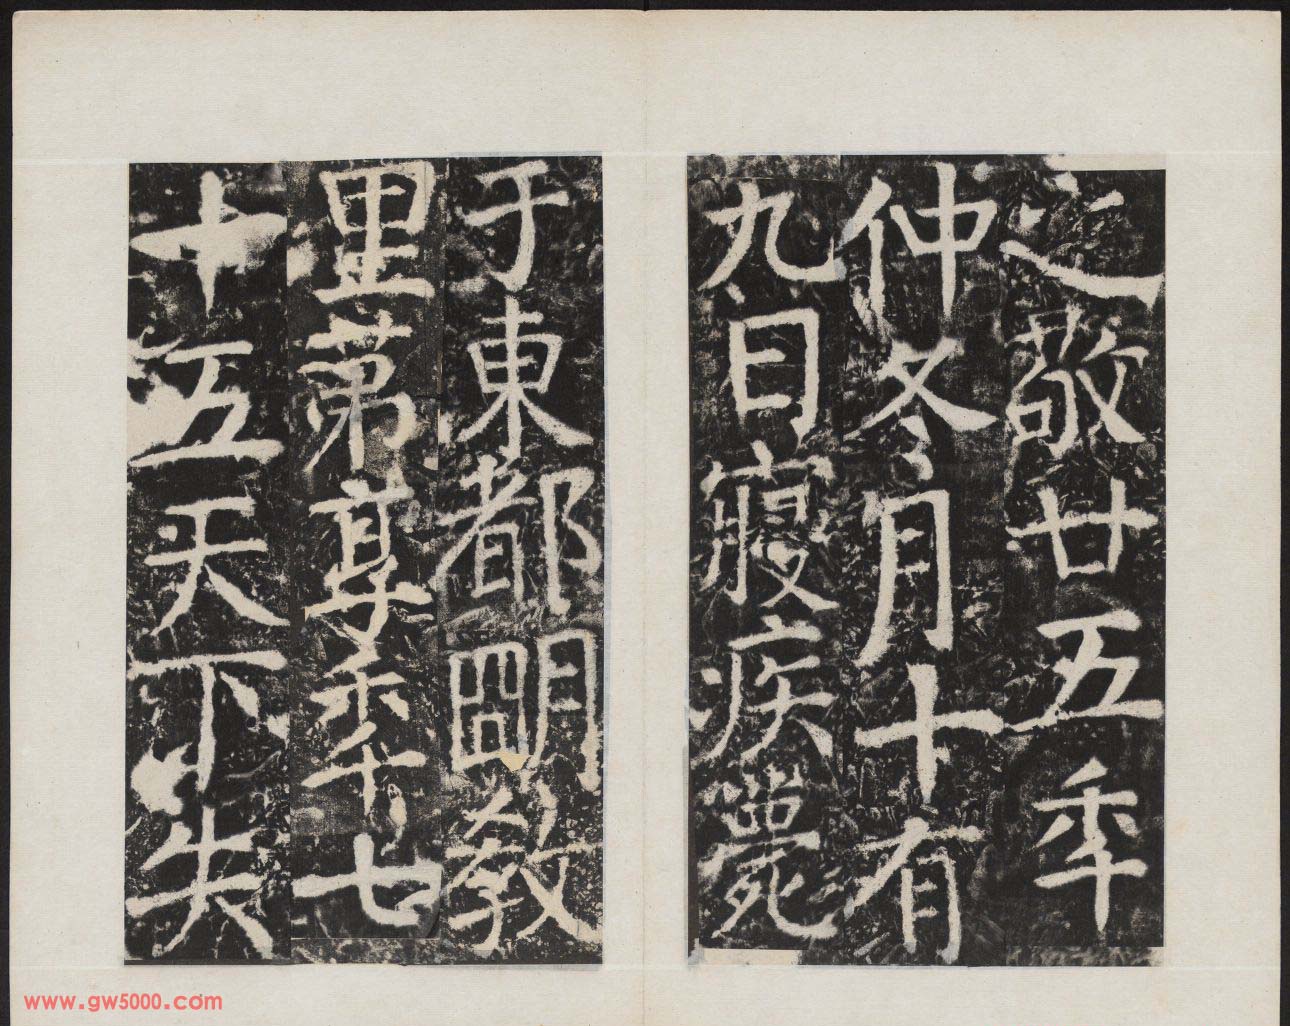 之敬廿五年
仲冬月十有
九日寢疾薨
于東都朙教
里第享秊七
十五天下失
www.gw5000.com